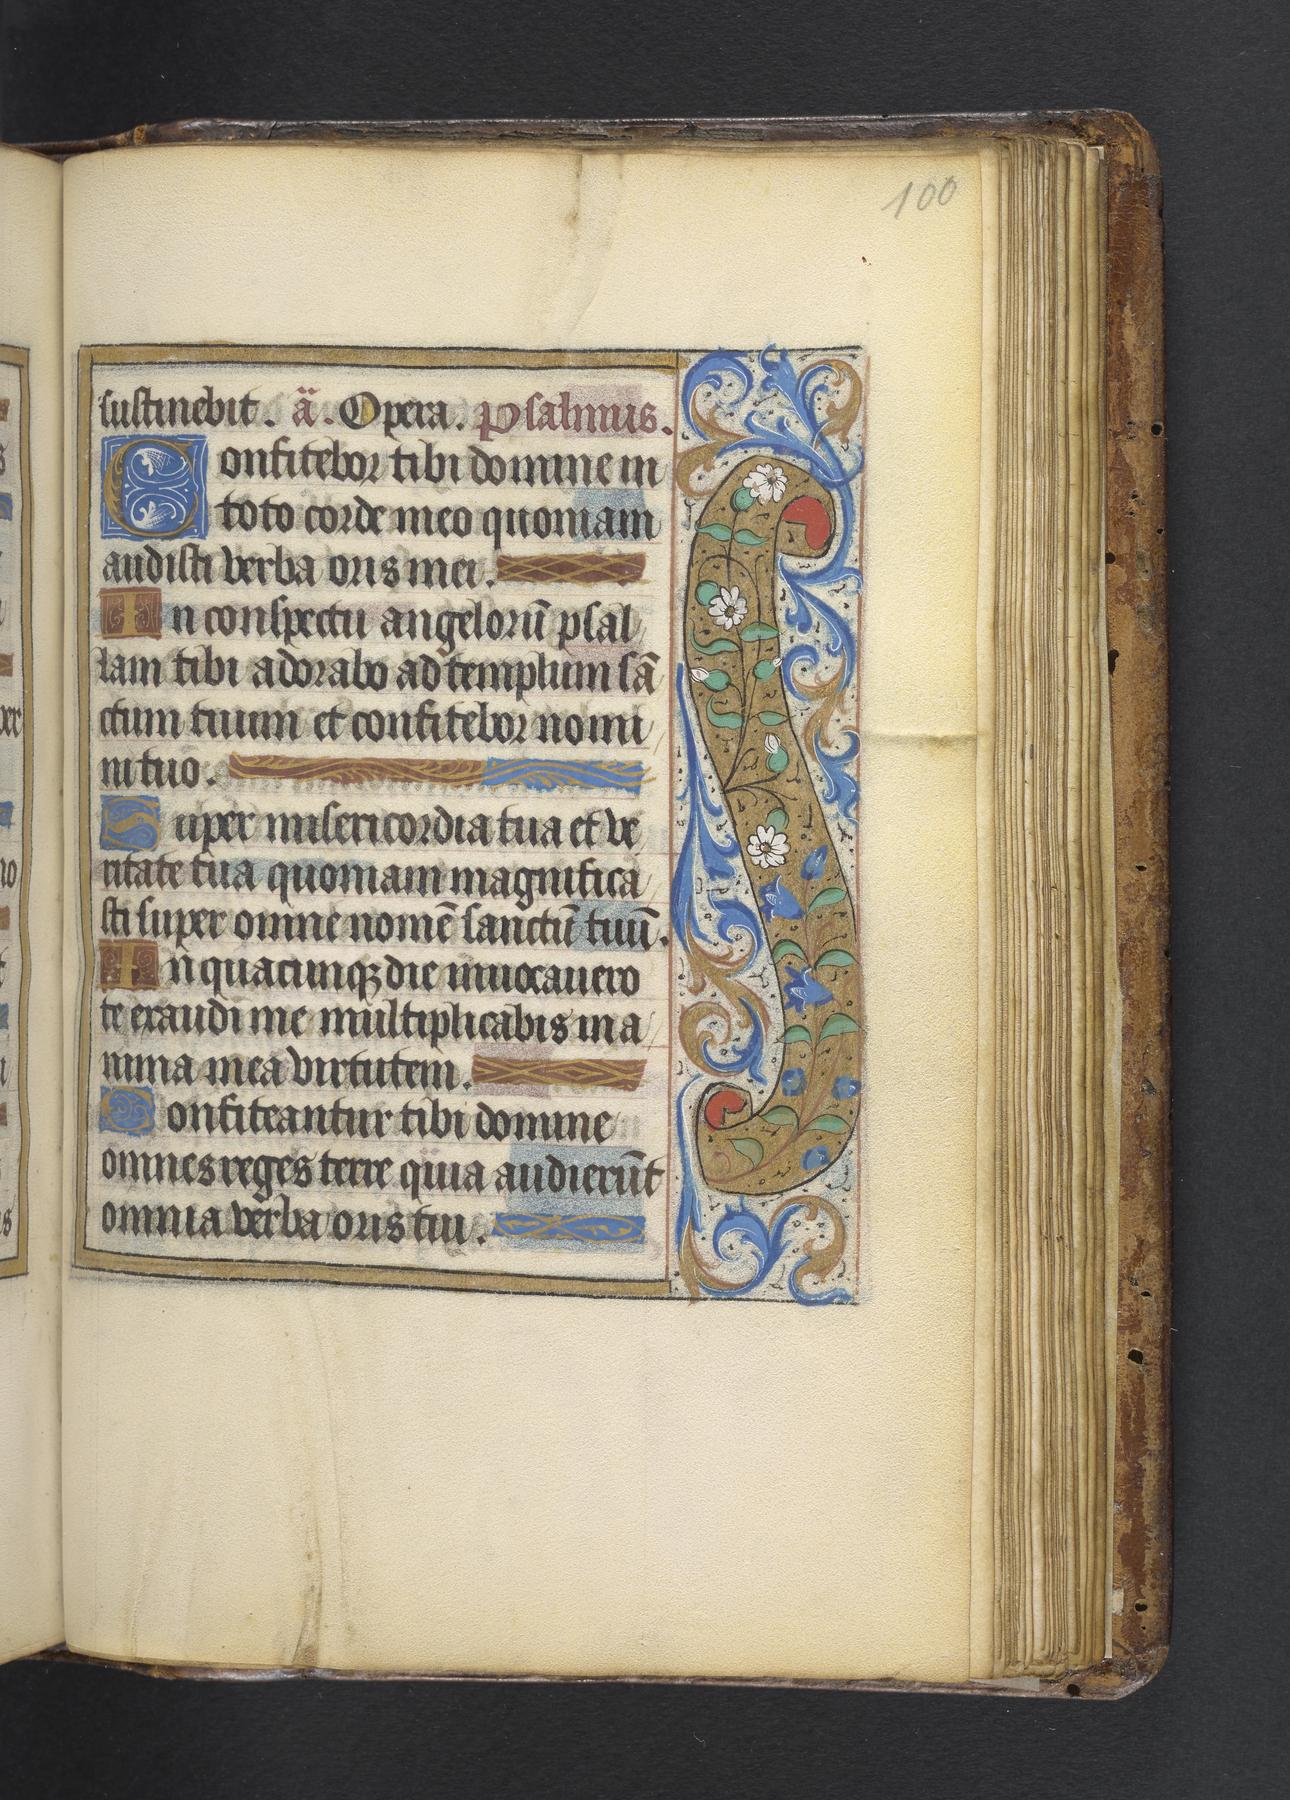 100
sustinebit. ā. Opera. psalmus.
Confitebor tibi domine in
toto corde meo quoniam
audisti verba oris mei.
In conspectu angelorū psal
lam tibi adorabo ad templum sā
ctum tuum et confitebor nomi
ni tuo.
Super misericordia tua et ve
ritate tua quoniam magnifica
sti super omne nomē sanctū tuū.
In quacunqꝫ die inuocauero
te exaudi me multiplicabis in a
nima mea virtutem.
Confiteantur tibi domine
omnes reges terre quia audierūt
omnia verba oris tui.